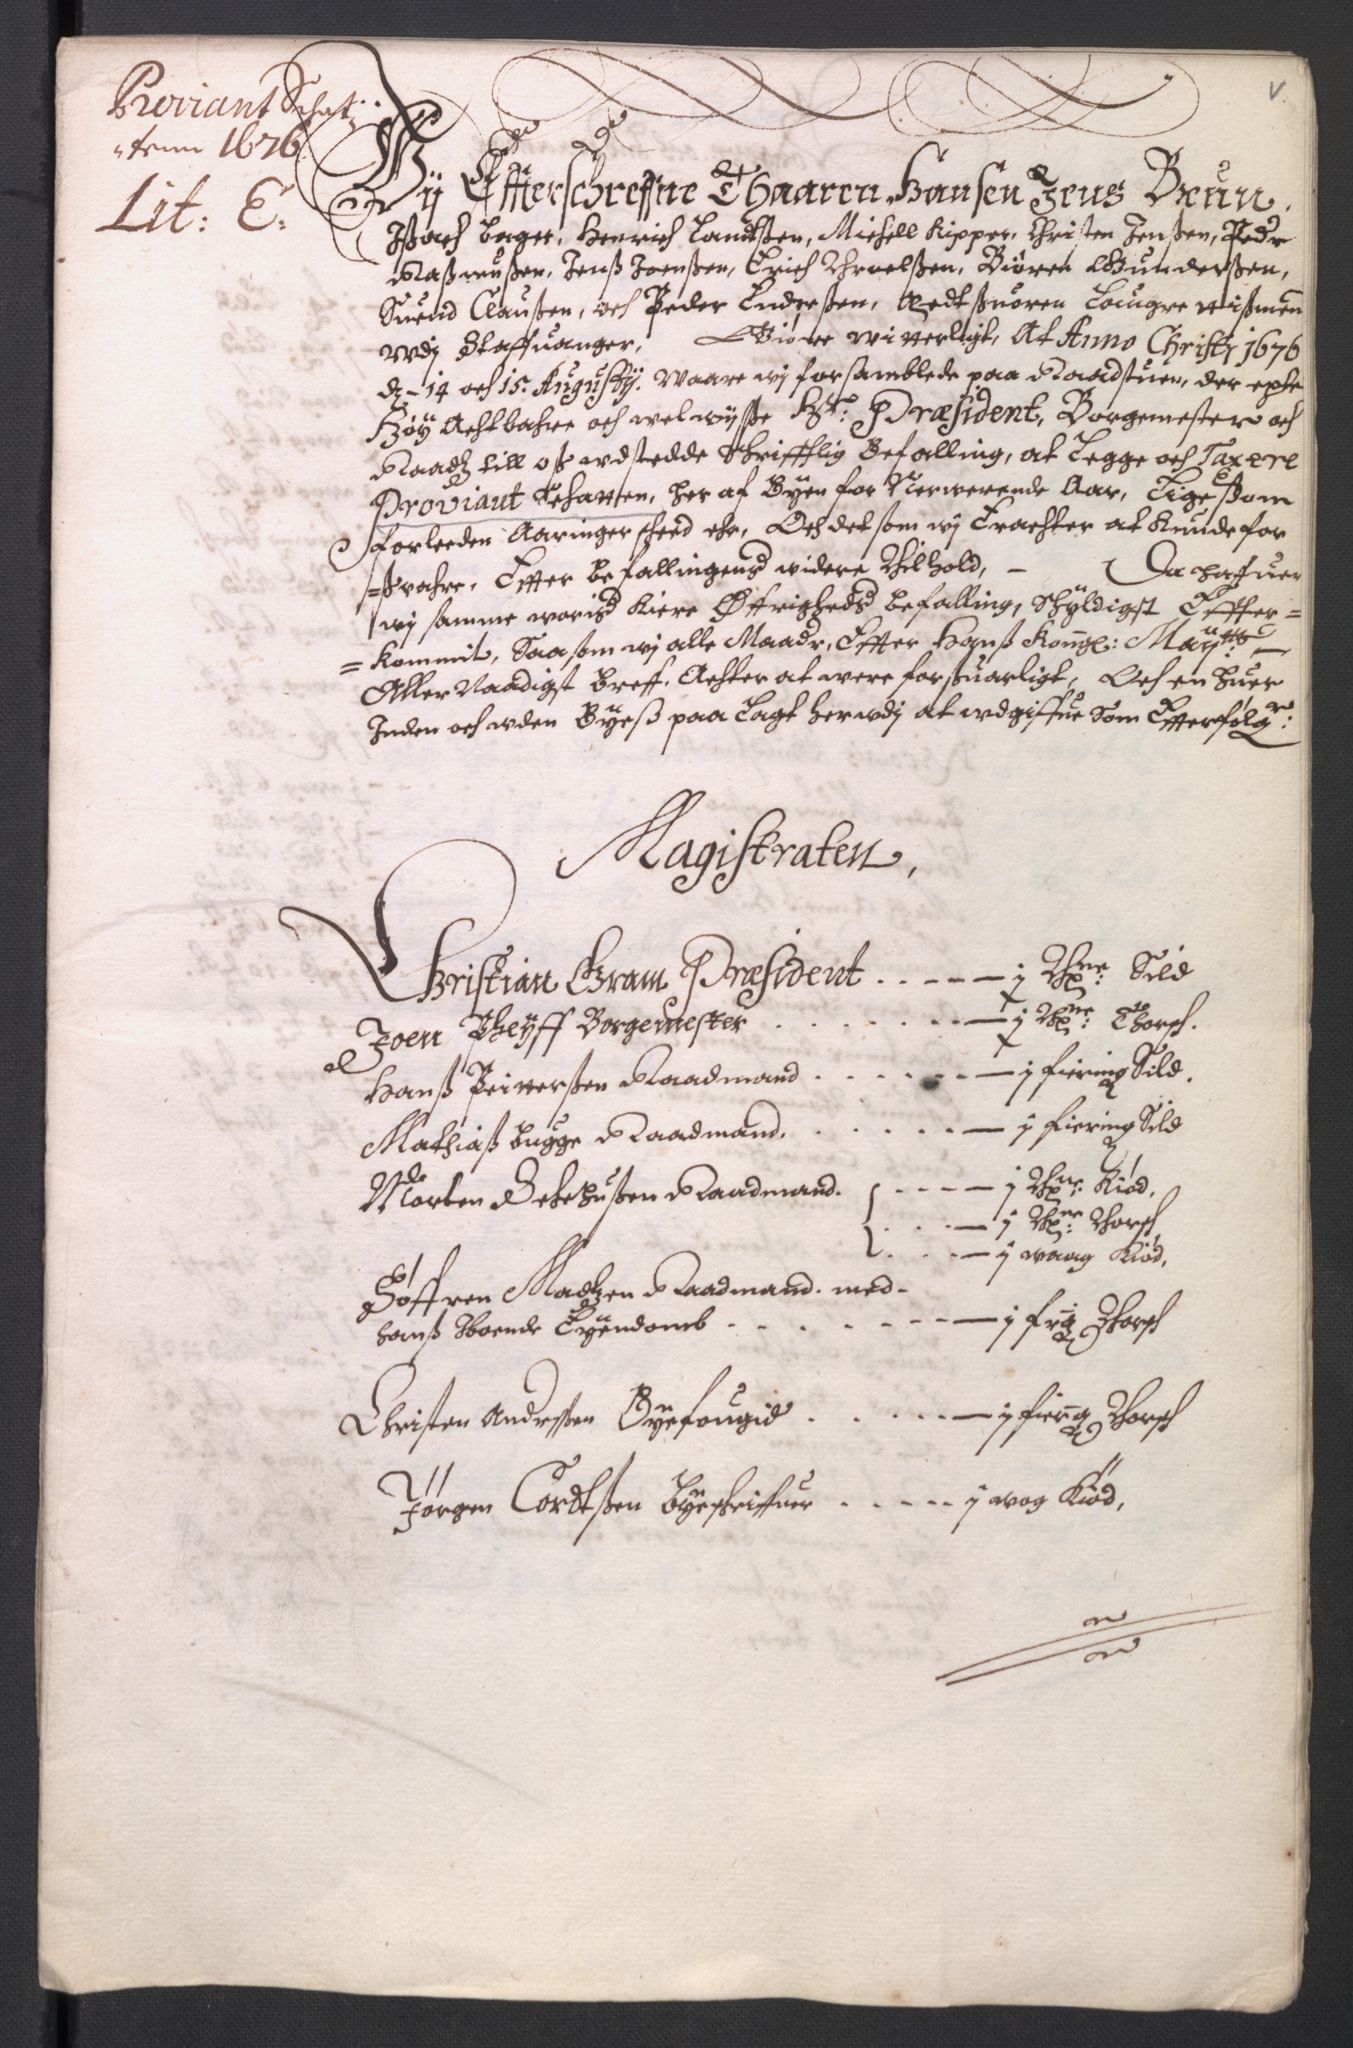 Proviant Schat-
tenn 1676
Lit: E:
V
Wij Effterschreffne Thaaren Hansen Jens Brun,
Isach Lager, Henrich Landtzen, Michell Kipper, Christen Jenßen, Peder
Raßmußen, Jenß Joenßen, Erich Throelßen, Biøren Gunderßen,
Suend Claußen, och Peder Enderßen, Aedtsuoren Laugrettißmend
udj Staffuanger, Giøre witterligt, At Anno Christj 1676
dend 14 och 15 Augustij. Waare wj forsamblede paa Raadstuen, der epther
Høy Achtbahre och welwysse Hr: Præsident, Borgemester och
Raadtz till oß udstedde Schrifftlig Befalling, at Legge och Taxere
Proviant Schatten, her af Byen for Nerwerende Aar, Lige som
forleeden Aaringer scheed ehr, Och det som wj Erachter at Kunde for
=suahre, Effter befallingens widere Jhhold, - Da hafuer
wj samme woris kiere Øfrigheds befalling, schyldigst Effter=
=kommit, Saa som wj alle Maader, Effter Hanß Kongl: Maÿtts
Aller Naadigst Breff, Achter at were forsuarligt, Och en huer
Inden och uden Byeß paa Lagt herudj at udgiffue Som Efferfølger:
Magistraten,
Christian Gram Præsident - - - - j Thne: Sild
Joen Pheyff Borgemester - - - - j Thne: Thorsch.
Hanß Peitterßen Raadmand - - - - j fiering Sild.
Mathiaß Bugge Raadmand. - - - - j fiering Sild
Morten Dechnußen Raadmand. - - - - j Thne: Kiød,
- - - j Thne: Thorsch
- - - j waag Kiød,
Søffren Madtzen Raadmand. med-
hanß Iboende Eyendomb - - - - j frg Thorsch
Christen Anderssen Byefougid - - - - j fierg Thorsch
Jørgen Cordtßen Byeschriffuer - - - - j wog Kiød,